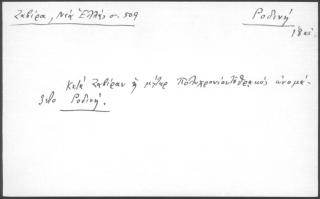 Ζαβίρα, Νέα Ἑλλὰς σ. 509
Ροδινή
18 αἰ.
Κατά Ζαβίραν ἡ μήτηρ Πολυχρονίου τοῦ Θρακός ὠνομά-
ζετο Ροδινή.